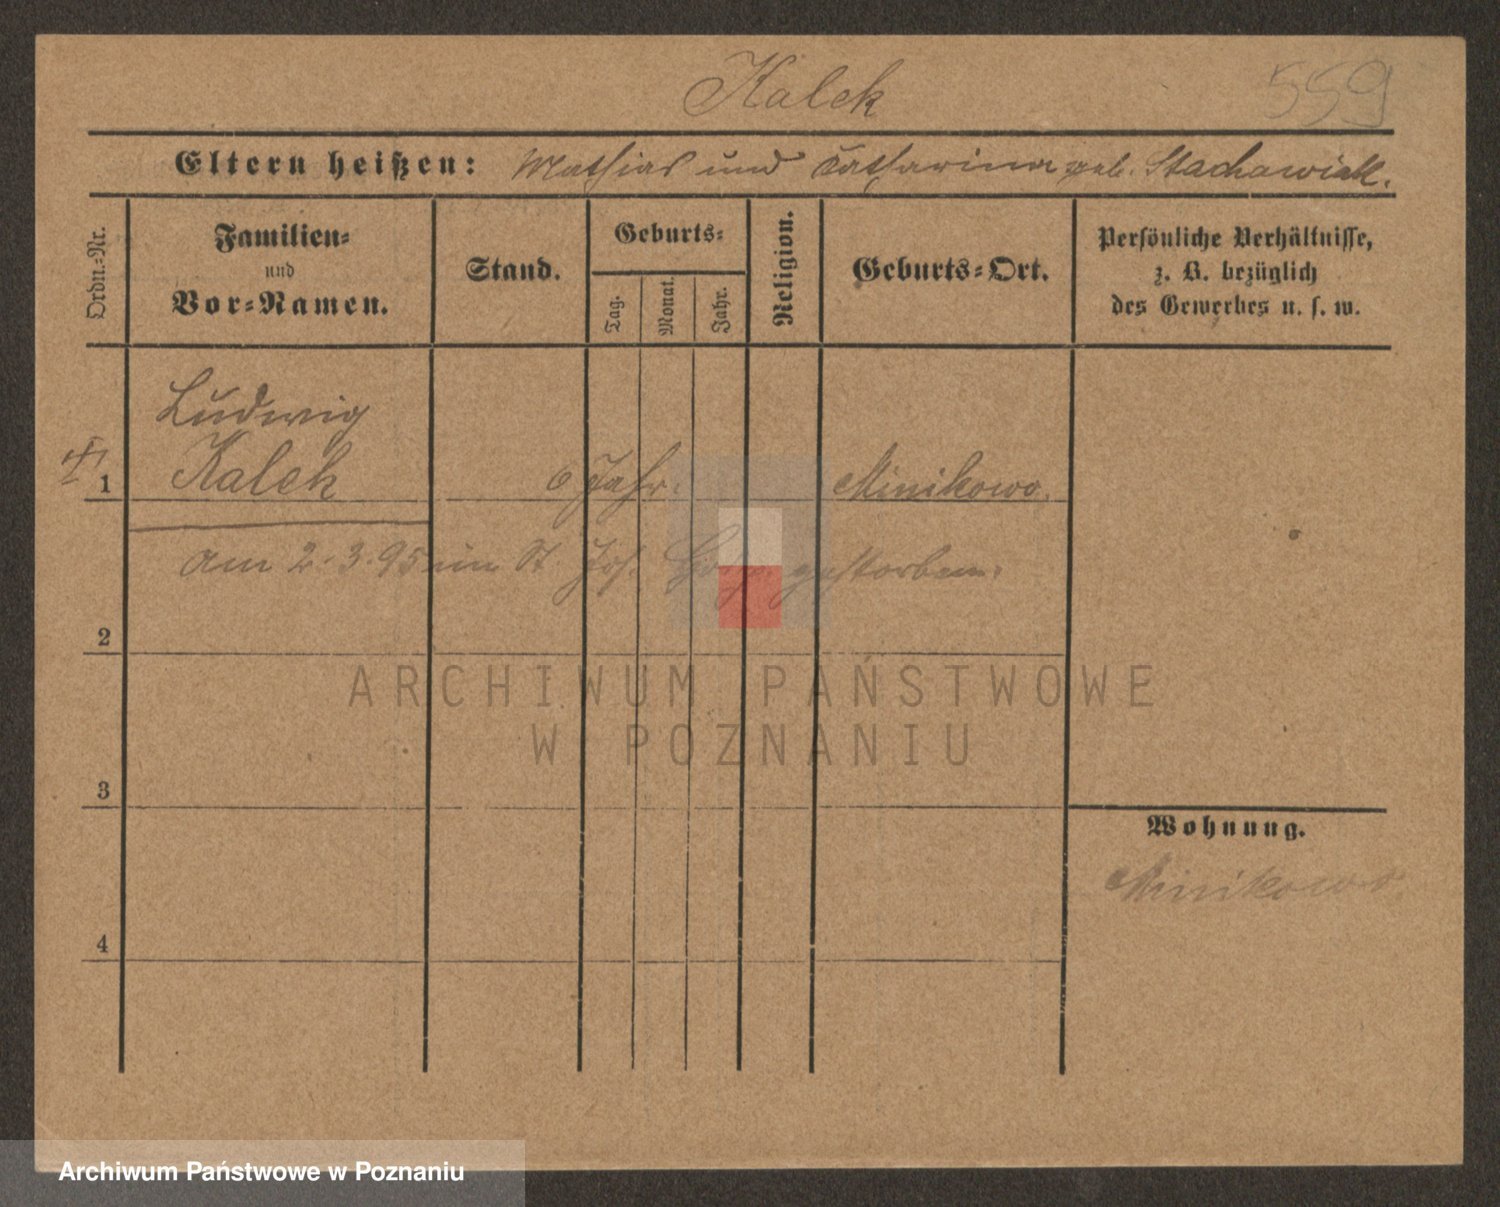 Kalek 559
Eltern heißen: Mathias und Katharina geb. Stachowiak.
Ordn.-Nr.
Familien-
und
Vor-Namen.
Stand.
Geburts-
Tag.
Monat.
Jahr.
Religion.
Geburts-Ort.
Persönliche Verhältnisse,
z. B. bezüglich
des Gewerbes u. s. w.
Ludwig
1 Kalek 6 Jahr. Minikowo.
am 2.3.95 im St. Jos. gestorben.
2
3
4
Wohnung.
Minikowo
ARCHIWUM PAŃSTWOWE
W POZNANIU
Archiwum Państwowe w Poznaniu